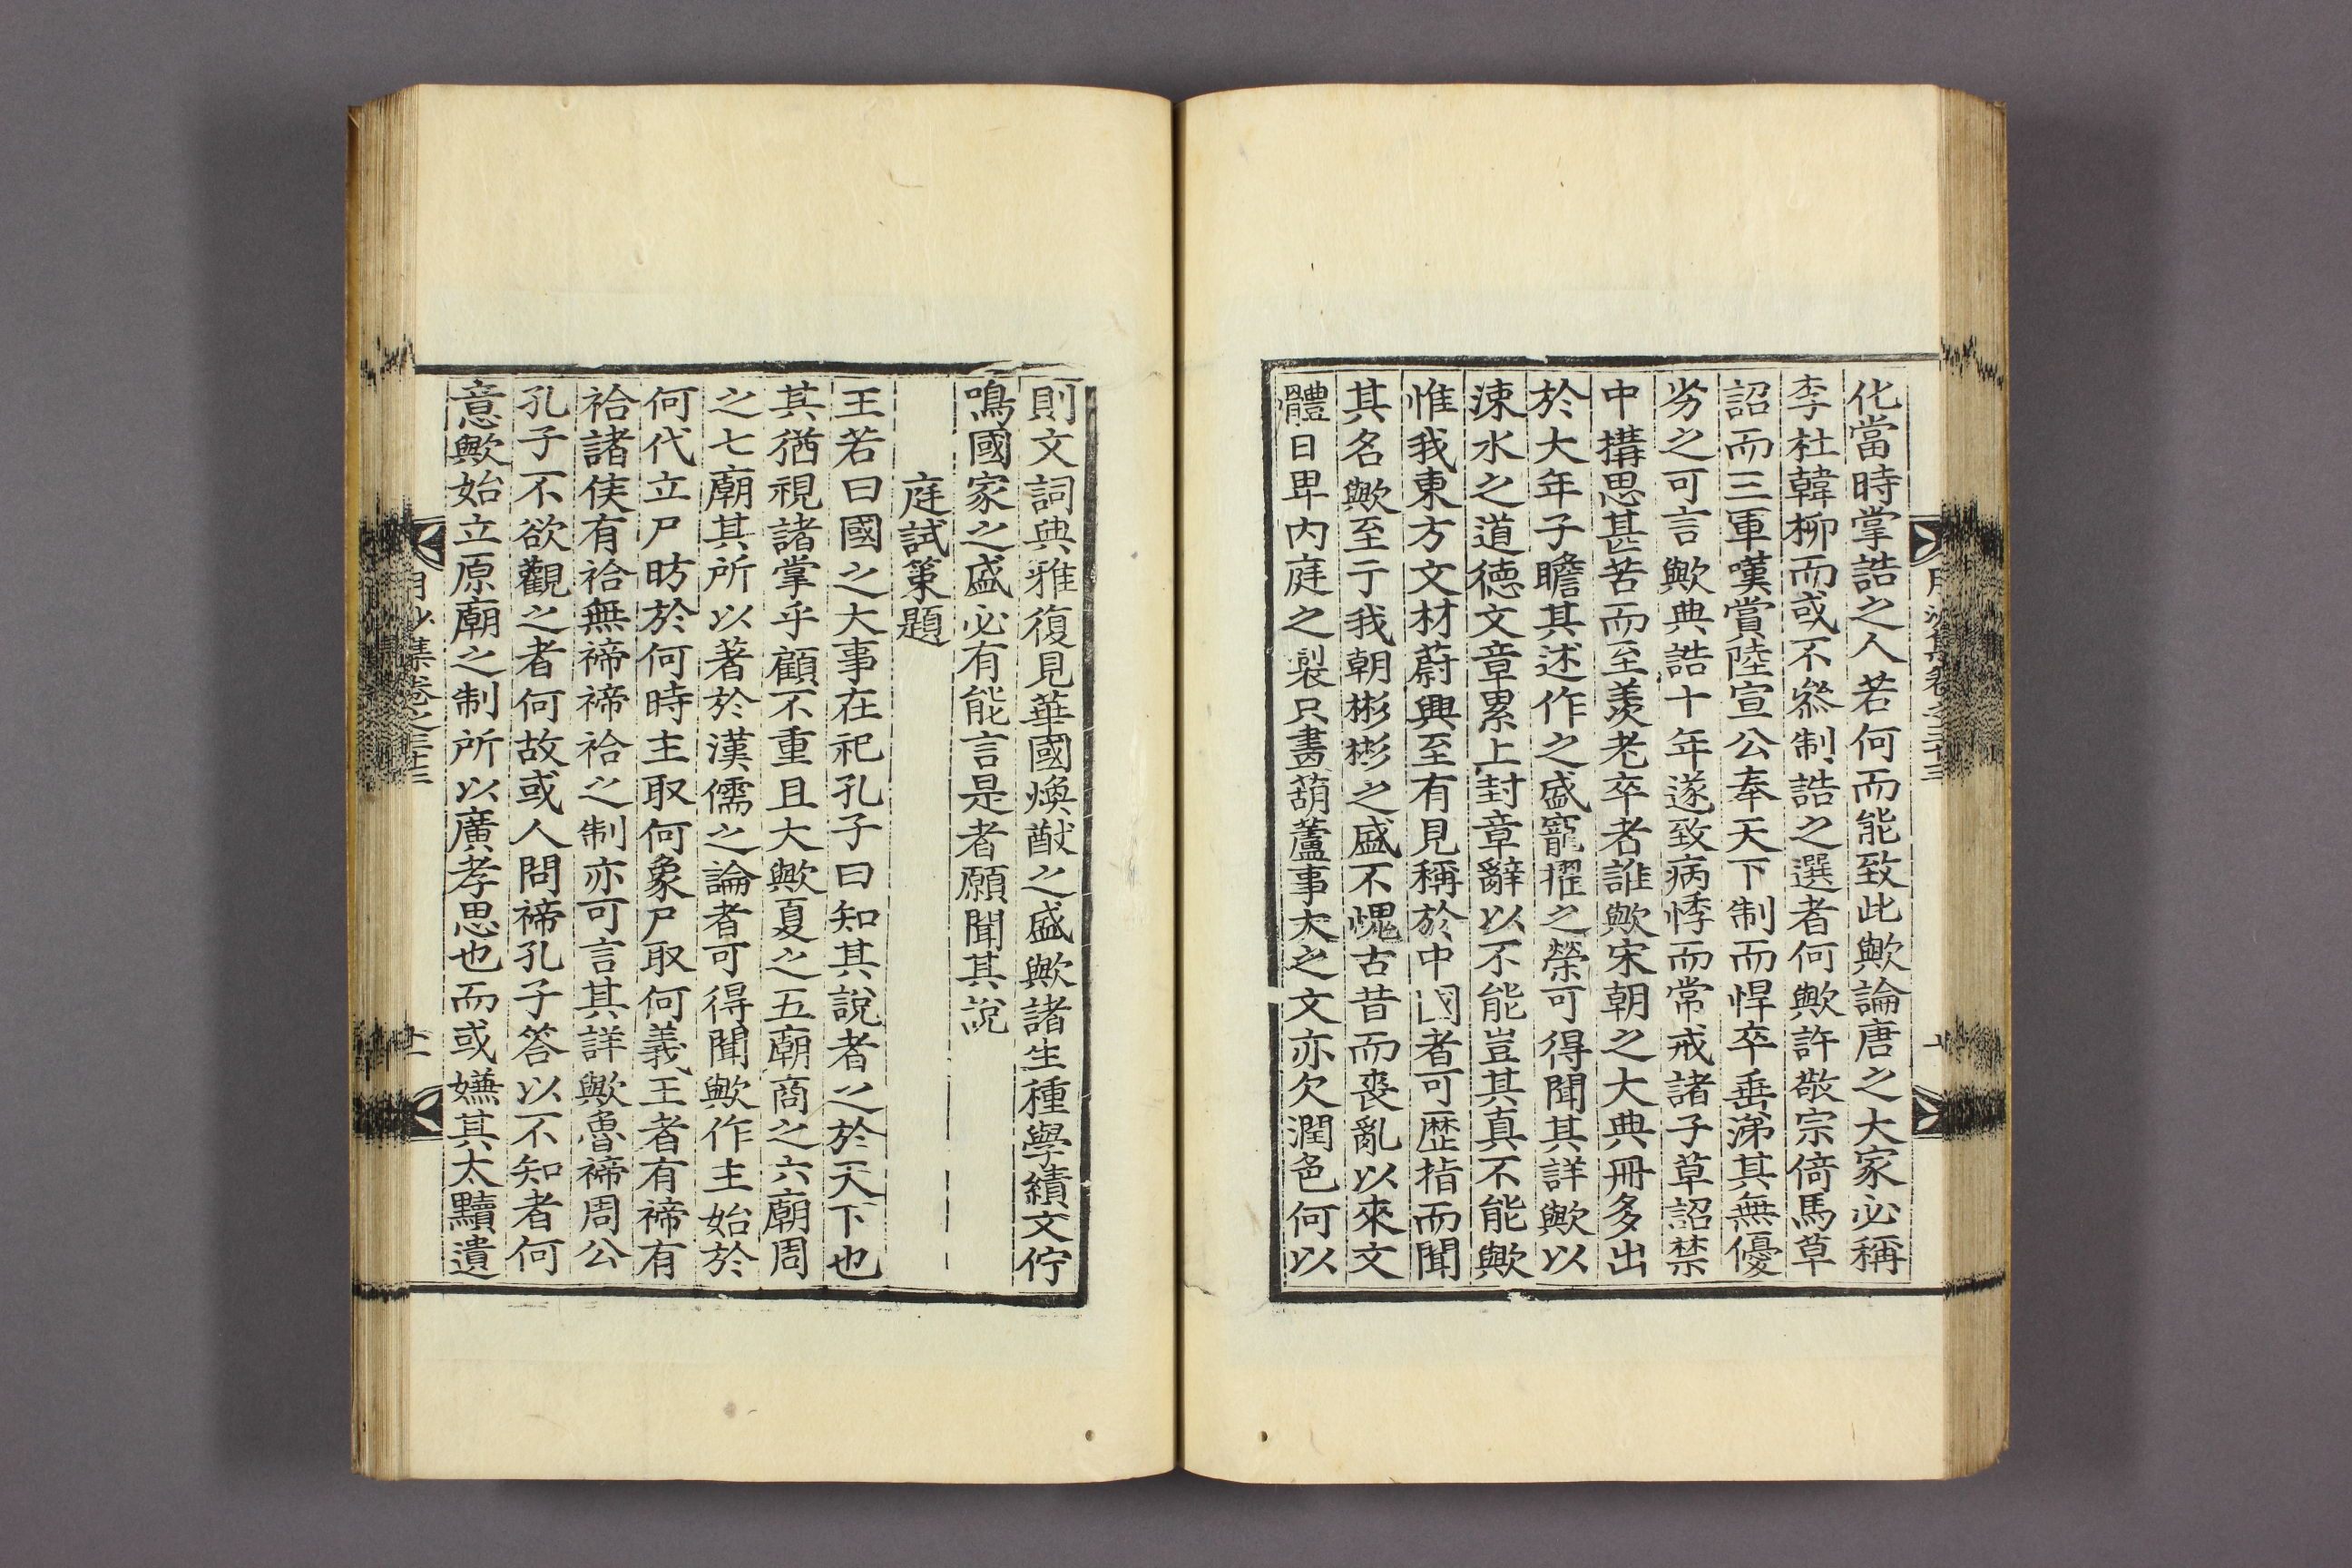 化當時掌誥之人若何而能致此歟論唐之大家必稱
李杜韓柳而或不叅制誥之選者何歟許敬宗倚馬草
詔而三軍嘆賞陸宣公奉天下制而悍卒垂涕其無優
劣之可言歟典誥十年遂致病悸而常戒諸子草詔禁
中搆思甚苦而至羡老卒者誰歟宋朝之大典冊多出
於大年子瞻其述作之盛寵擢之榮可得聞其詳歟以
涑水之道德文章累上封章辭以不能豈其真不能歟
惟我東方文材蔚興至有見稱於中國者可歷指而聞
其名歟至于我朝彬彬之盛不愧古昔而喪亂以來文
體日卑内庭之製只畫葫蘆事大之文亦欠潤色何以
則文詞典雅復見華國煥猷之盛歟諸生種學績文佇
鳴國家之盛必有能言是者願聞其說
庭試策題
王若曰國之大事在祀孔子曰知其說者之於天下也
其猶視諸掌乎顧不重且大歟夏之五廟商之六廟周
之七廟其所以著於漢儒之論者可得聞歟作主始於
何代立尸昉於何時主取何象尸取何義王者有禘有
祫諸侯有祫無禘禘祫之制亦可言其詳歟魯禘周公
孔子不欲觀之者何故或人問禘孔子答以不知者何
意歟始立原廟之制所以廣孝思也而或嫌其太黷遺
月沙集卷之三十三